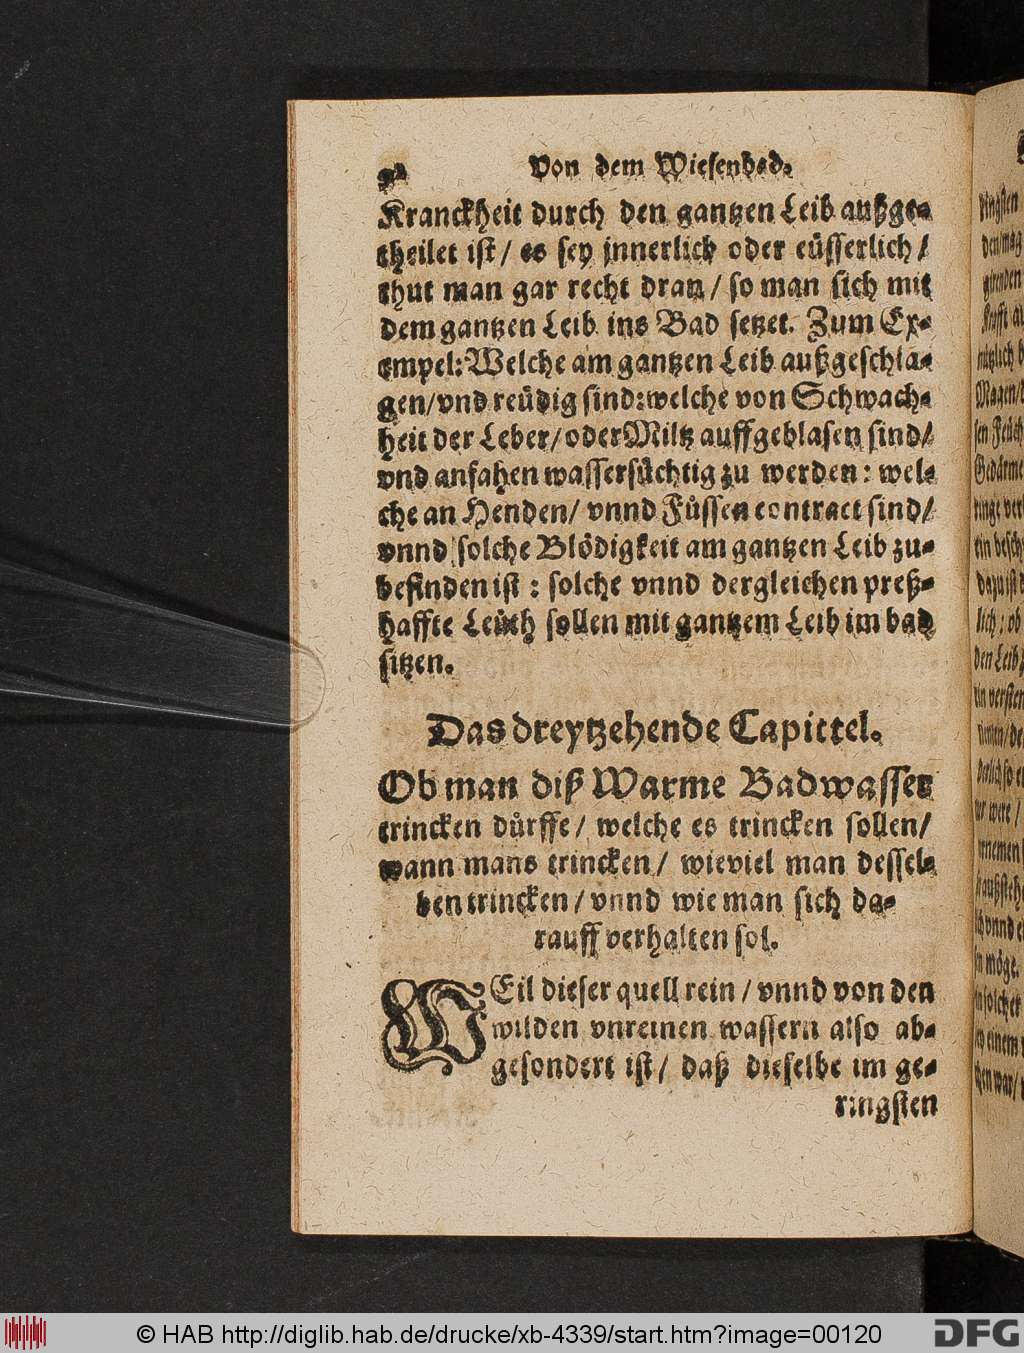 Von dem Wiesenbad.
Kranckheit durch den gantzen Leib außge-
theilet ist / es sey jnnerlich oder eüsserlich /
thut man gar recht dran / so man sich mit
dem gantzen Leib ins Bad setzet. Zum Ex-
empel: Welche am gantzen Leib außgeschla-
gen / vnd reüdig sind: welche von Schwach-
heit der Leber / oder Miltz auffgeblasen sind /
vnd anfahen wassersüchtig zu werden: wel-
che an Henden / vnnd Füssen contract sind /
vnnd solche Blödigkeit am gantzen Leib zu-
befinden ist: solche vnnd dergleichen preß-
haffte Leüth sollen mit gantzem Leib im bad
sitzen.
Das dreytzehende Capittel.
Ob man diß Warme Badwasser
trincken dürffe / welche es trincken sollen /
wann mans trincken / wieviel man dessel-
ben trincken / vnnd wie man sich da-
rauff verhalten sol.
WEil dieser quell rein / vnnd von den
wilden vnreinen wassern also ab-
gesondert ist / daß dieselbe im ge-
ringsten
ringsten
© HAB http://diglib.hab.de/drucke/xb-4339/start.htm?image=00120
DFG